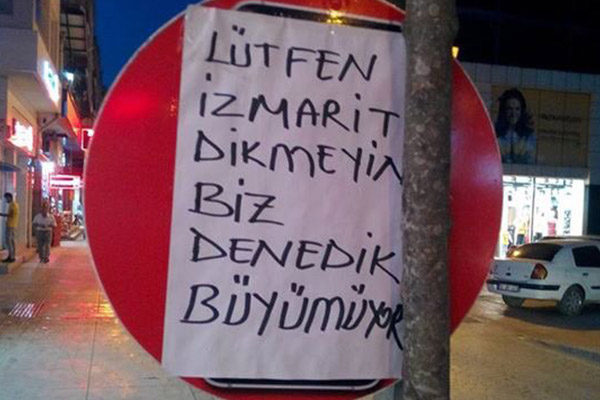 LÜTFEN
İZMARİT
DİKMEYİN
BİZ
DENEDİK
BÜYÜMÜYOR